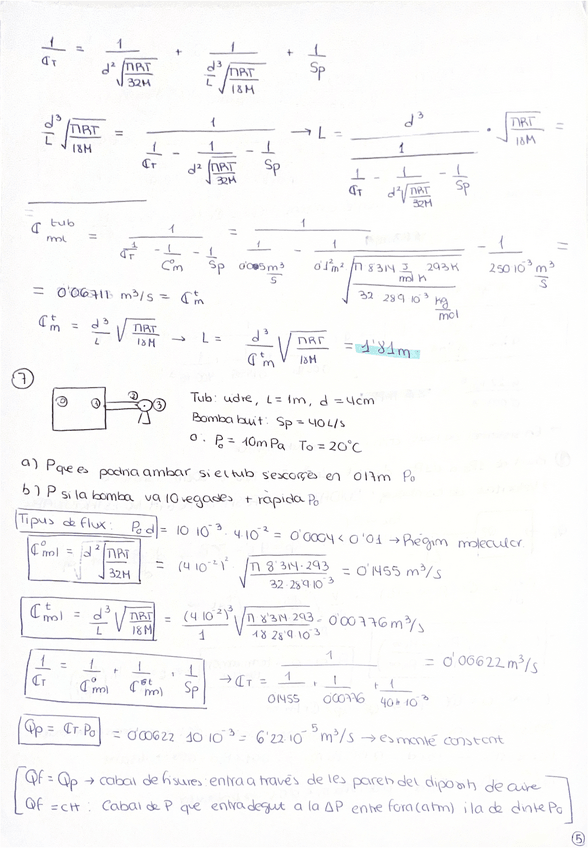 1/C_T = 1/(d² √(ΠRT/32M)) + 1/(d³/L √(ΠRT/18M)) + 1/Sp
d³/L √(ΠRT/18M) = 1/(1/C_T - 1/(d² √(ΠRT/32M)) - 1/Sp) → L = d³/(1/(1/C_T - 1/(d² √(ΠRT/32M)) - 1/Sp)) · √(ΠRT/18M) =
C tub mol = 1/(1/C_T - 1/C°m - 1/Sp) = 1/(1/(m³/s) - 1/(0'1² m² √(Π 8'314 J/mol K 293K / 32 28'9 10⁻³ kg/mol)) - 1/(250 10⁻³ m³/s)) =
= 0'06711 m³/s = C^t_m
C^t_m = d³/L √(ΠRT/18M) → L = d³/C^t_m √(ΠRT/18M) = 1'81m
7
0 1 2 3
Tub: L = 1m, d = 4cm
Bomba buit: Sp = 40L/s
0. P₀ = 10mPa T₀ = 20°C
a) P que es podria ambar si el tub s'escorçés en 0'17m P₀
b) P si la bomba va 10 vegades + ràpida P₀
Tipus de flux: P₀ d = 10 10⁻³ · 4 10⁻² = 0'0004 < 0'01 → Règim molecular
C°mol = d² √(ΠRT/32M) = (4 10⁻²)² √(Π 8'314·293 / 32·28'9 10⁻³) = 0'1455 m³/s
C^t mol = d³/L √(ΠRT/18M) = (4 10⁻²)³/1 √(Π 8'314·293 / 18 28'9 10⁻³) = 0'00776 m³/s
1/C_T = 1/C°mol + 1/C^t mol + 1/Sp → C_T = 1/(1/0'1455 + 1/0'00776 + 1/(40 10⁻³)) = 0'00622 m³/s
Qp = C_T·P₀ = 0'00622 · 10 10⁻³ = 6'22 10⁻⁵ m³/s → es manté constant
Qf = Qp → cabal de fisures: entra a través de les parets del diposit de aire
Qf = cte : Cabal de P que entra degut a la ΔP entre fora (atm) i la de dintre P₀
5